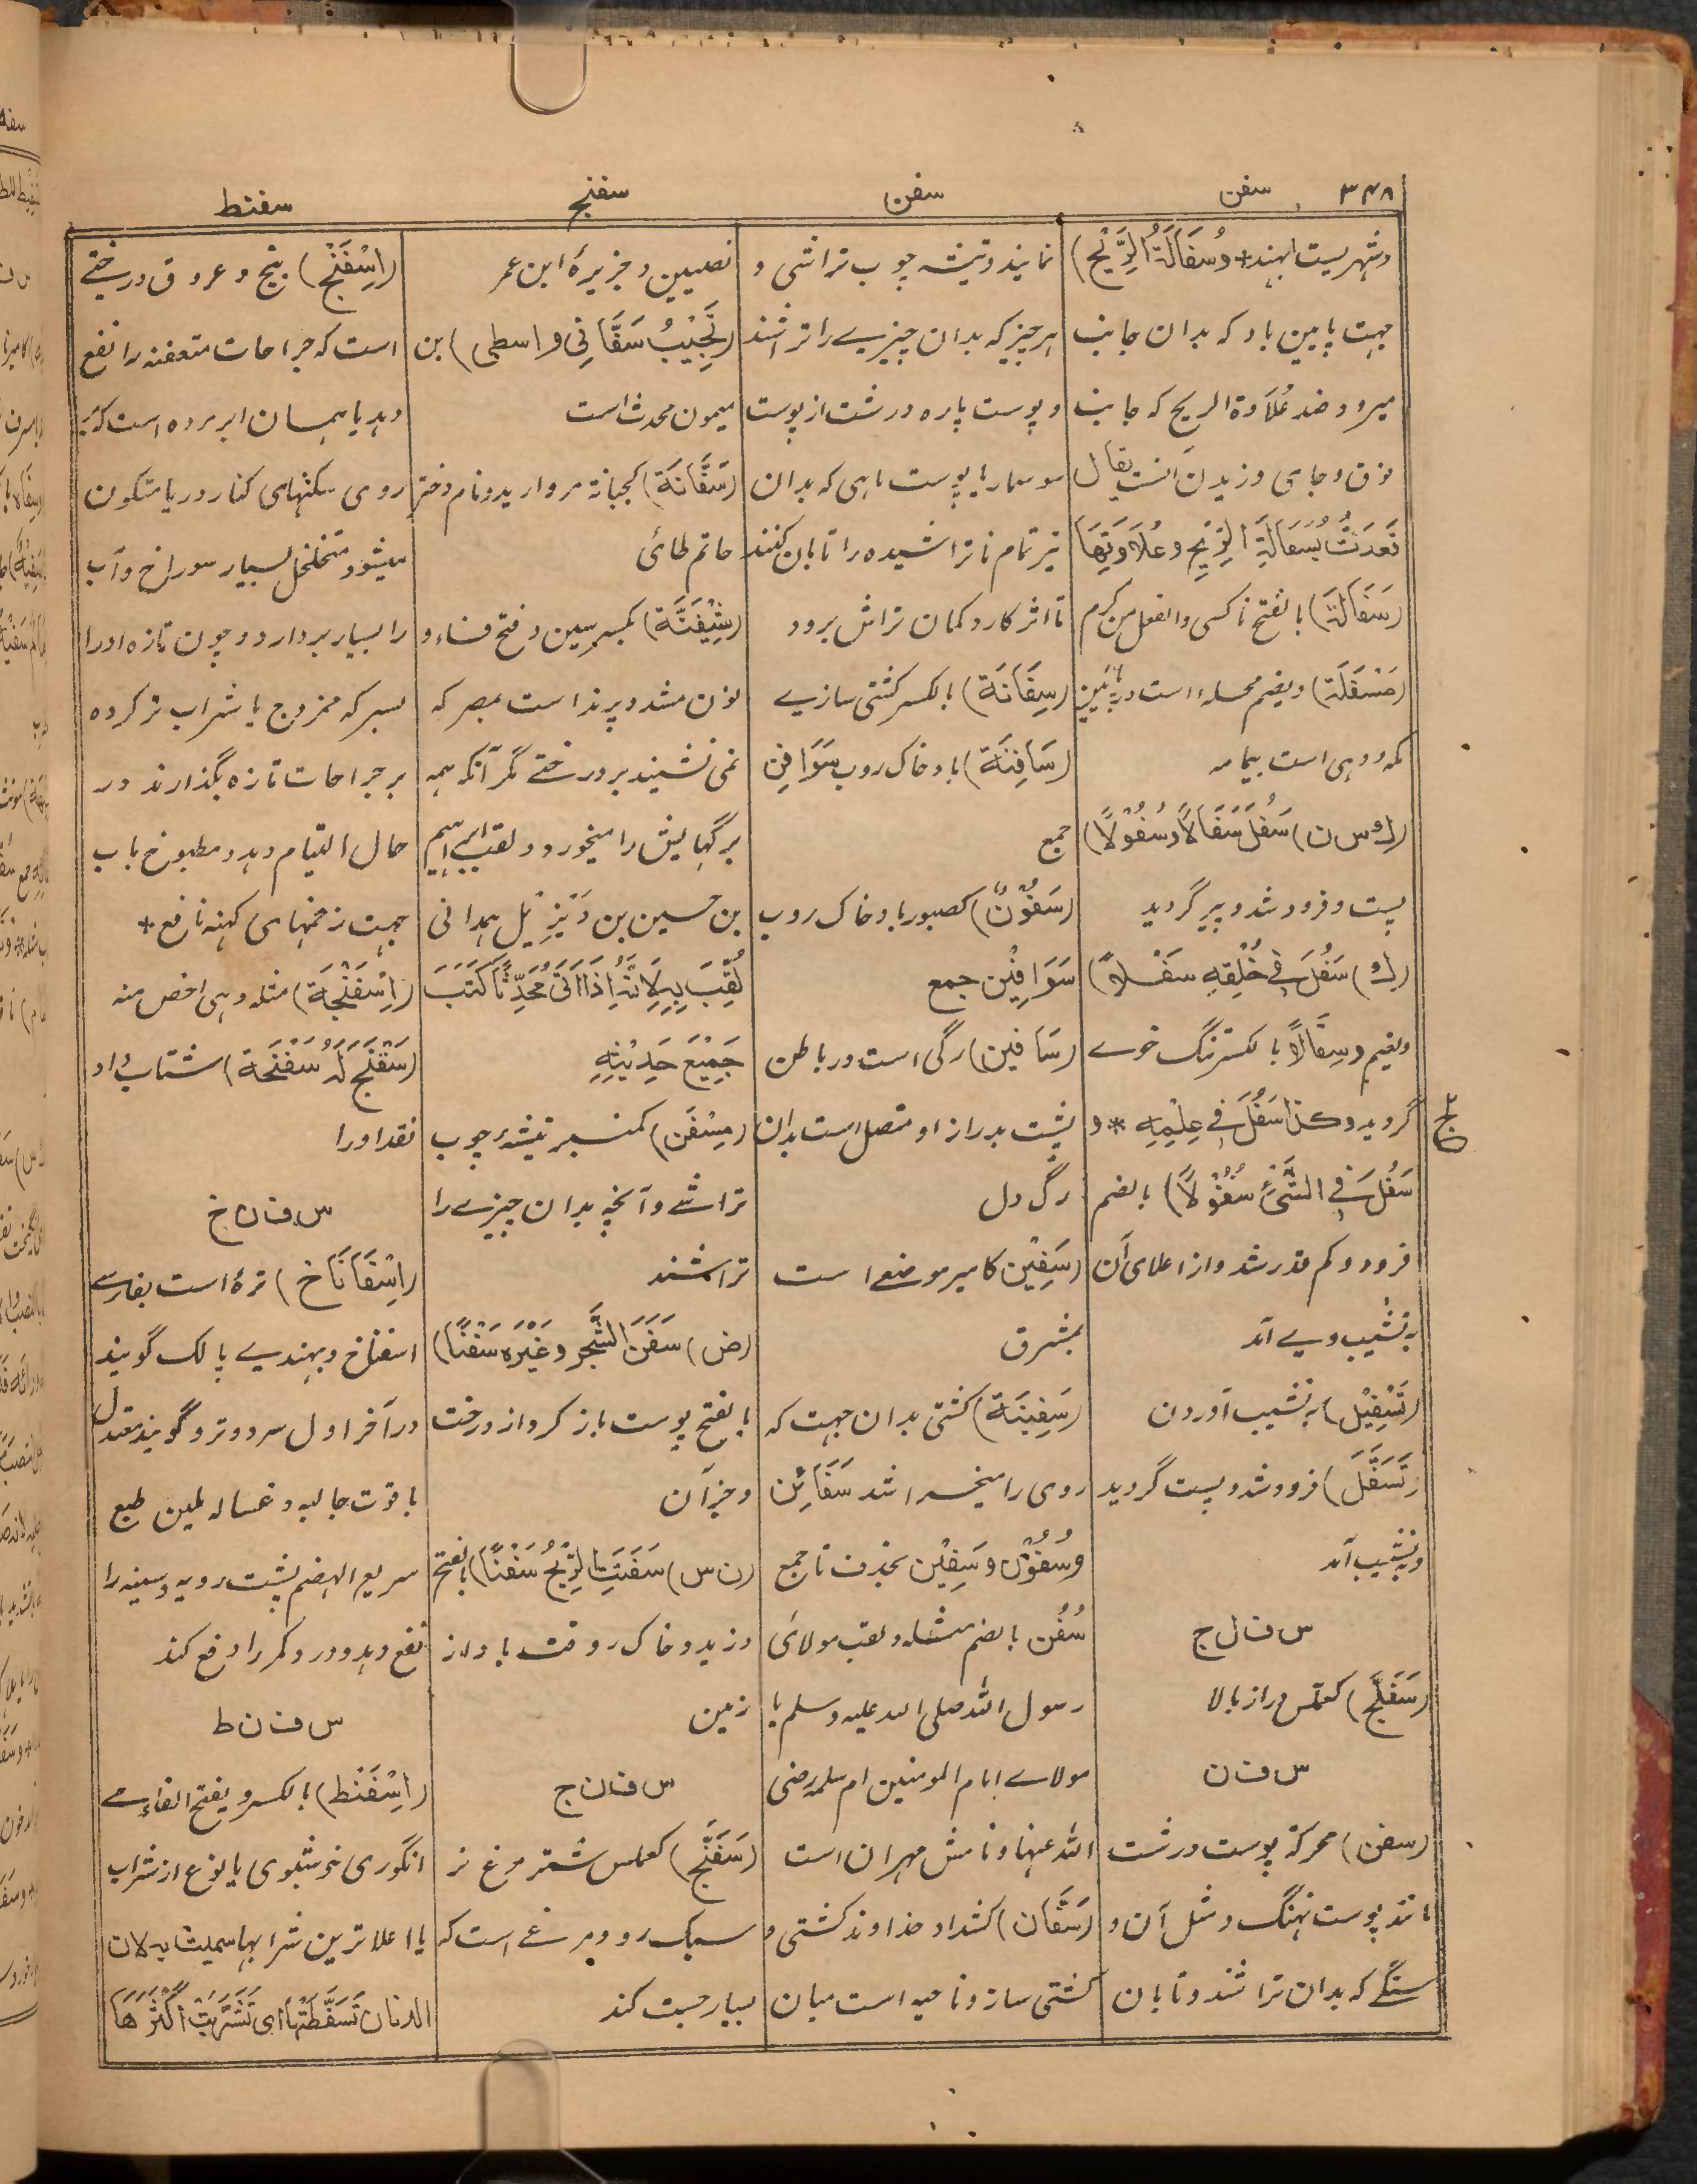 ۳۴۸ سفن سفن سفنج سفنط
وشهریست بهند + وُسفَالَةُ الرِّیْح)
جهت پایین باد که بدان جانب
میرود ضد عُلَاوة الریح که جانب
فوق و جای وزیدن آنست یقال
قَعَدَتُ بُسَفَالَةِ الرِّیْحِ وعُلَاوَتِهَا
(سَفَالَة) بالفتح ناکسی والفعل من کرم
(مَسْفَلَة) ویضم محله است در پائین
که ودهی است بیمامه
(ك س ن) سَفُلَ سَفَالًا وسُفُوْلًا)
پست وفرود شد وپیر گردید
(ك) سَفُلَ فی خُلُقِهِ سَفْلًا)
ویضم وسِفَالًا بالکسر تنگ خوے
گردید وکذا سَفُلَ فی عِلْمِهِ * و
سَفُلَ فِی الشَّیْءِ سُفُوْلًا) بالضم
فرود وکم قدر شد واز اعلای آن
به نشیب وے آمد
(تَسْفِیْل) به نشیب آوردن
(تَسَفَّلَ) فرود شد وپست گردید
وبه نشیب آمد
س ف ل ج
(سَفَلَّج) کعملّس دراز بالا
س ف ن
(سفن) محرکة پوست درشت
مانند پوست نهنگ ومثل آن و
سنگے که بدان تراشند وتابان
نمایند وتیشه چوب تراشی و
هر چیز که بدان چیزے را تراشند
وپوست پاره درشت از پوست
سوسمار یا پوست ماهی که بدان
تیر تمام ناتراشیده را تابان کنند
تا اثر کارد کمان تراش برود
(سِفَانَة) بالکسر کشتی سازیے
(سَافِنَة) باد خاک روب سَوَافِن
جمع
(سَفُوْنٌ) کصبور باد خاک روب
سَوَافِیْن جمع
(سَافین) رگی است در باطن
پشت بدراز او متصل است بدان
رگ دل
(سَفِیْن) کامیر موضعے است
بمشرق
(سَفِیْنَة) کشتی بدان جهت که
روی را میخراشد سَفَائِن
وسُفُوْن وسَفِیْن بحذف تا جمع
سُفُن بالضم مثله ولقب مولائ
رسول الله صلی الله علیه وسلم یا
مولاے ام المومنین ام سلمه رضی
الله عنها ونامش مهران است
(سَفَّان) کشداد خداوند کشتی و
کشتی ساز وناحیه است میان
نصیبین وجزیرۀ ابن عمر
(نَجِیْبُ سَفَّانِی واسطی) بن
میمون محدث است
(سَفَّانَة) کجبانة مروارید ونام دختر
حاتم طائی
(سِیْفَنَّة) بکسر سین وفتح فاء و
نون مشدد پرنده است بمصر که
نمی نشیند بر درختے مگر آنکه همه
برگهایش را میخورد ولقب ابراهیم
بن حسین بن دَیْزِیْل همدانی
لُقِّبَ بِهِ لِاَنَّهُ اِذَا اَتٰی مُحَدِّثًا کَتَبَ
جَمِیْعَ حَدِیْثِهِ
(مِسْفَن) کمنبر تیشۀ چوب
تراشے وآنچه بدان چیزے را
تراشند
(ض) سَفَنَ الشَّجَر وغَیْرَه سَفْنًا)
بالفتح پوست باز کرد از درخت
وجز آن
(ن س) سَفَنَتِ الرِّیْحُ سَفْنًا) بالفتح
وزید وخاک روفت باد از
زمین
س ف ن ج
(سَفَنَّج) کعملس شتر مرغ نر
سبک رو ومرغے است که
بسیار جست کند
(اِسْفَنْج) بیخ وعروق درختے
است که جراحات متعفنه را نفع
دهد یا همان ابر مرده است که بر
روی سنگهای کنار دریا متکون
میشود متخلخل بسیار سوراخ وآب
را بسیار بردارد وچون تازه او را
بسرکه ممزوج یا شراب تر کرده
بر جراحات تازه بگذارند در
حال التیام دهد ومطبوخ باب
جهت زخمهای کهنه نافع *
(اِسْفَنْجَة) مثله وهی اخص منه
(سَفْنَجَ لَهُ سَفْنَجَة) شتاب او
نقد او را
س ف ن خ
(اِسْفَانَاخ) ترۀ است بفارسے
اسفناخ وبهندیے پالک گویند
در آخر اول سرد وتر وگویند معتدل
با قوت جالیه وغساله ملین طبع
سریع الهضم پشت وریه وسینه را
نفع دهد ودرد کمر را دفع کند
س ف ن ط
(اِسْفَنْط) بالکسر وبفتح الفاء مے
انگوری خوشبوی یا نوع از شراب
یا اعلاترین شرابها سمیت به لان
الدنان تَسَفَّطَتْهَا ای تَشَرَّبَتْ اَکْثَرَهَا